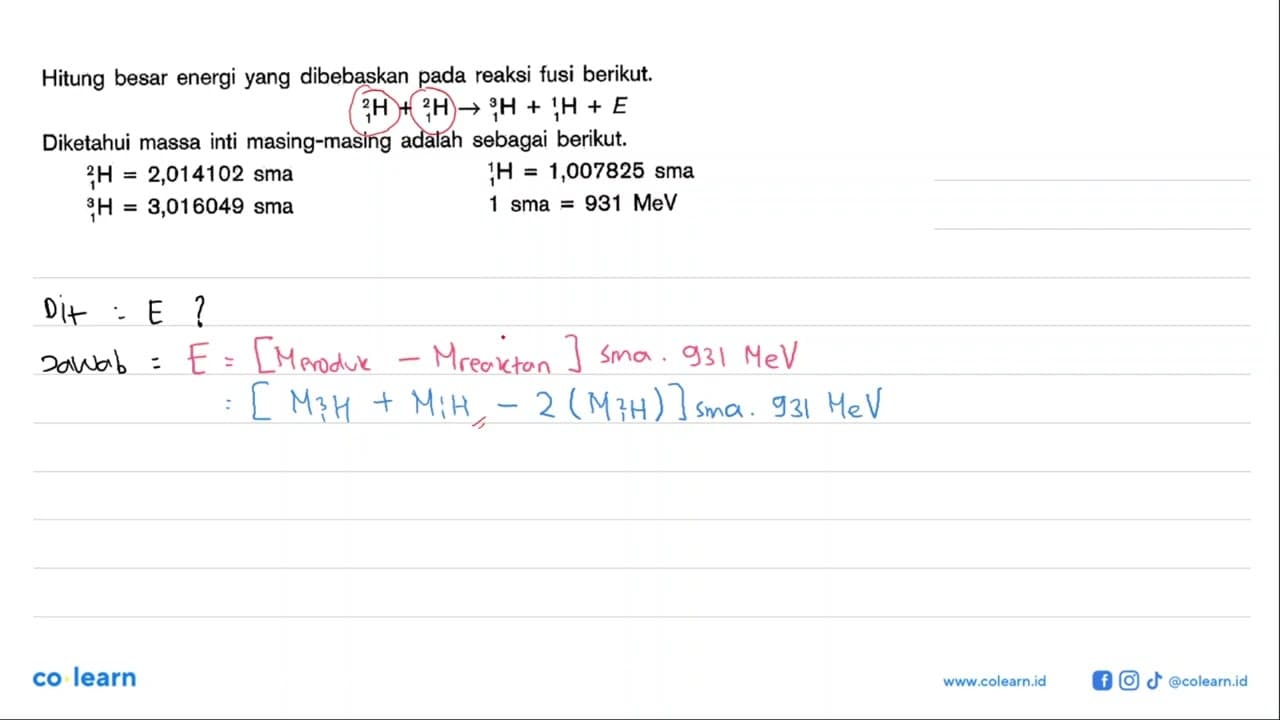 Hitung besar energi yang dibebaskan pada reaksi fusi berikut.
²₁H + ²₁H → ³₁H + ¹₁H + E
Diketahui massa inti masing-masing adalah sebagai berikut.
²₁H = 2,014102 sma ¹₁H = 1,007825 sma
³₁H = 3,016049 sma 1 sma = 931 MeV
Dit : E ?
Jawab = E = [Mproduk - Mreaktan] sma . 931 MeV
= [M³₁H + M¹₁H - 2 (M²₁H)] sma . 931 MeV
co learn www.colearn.id @colearn.id